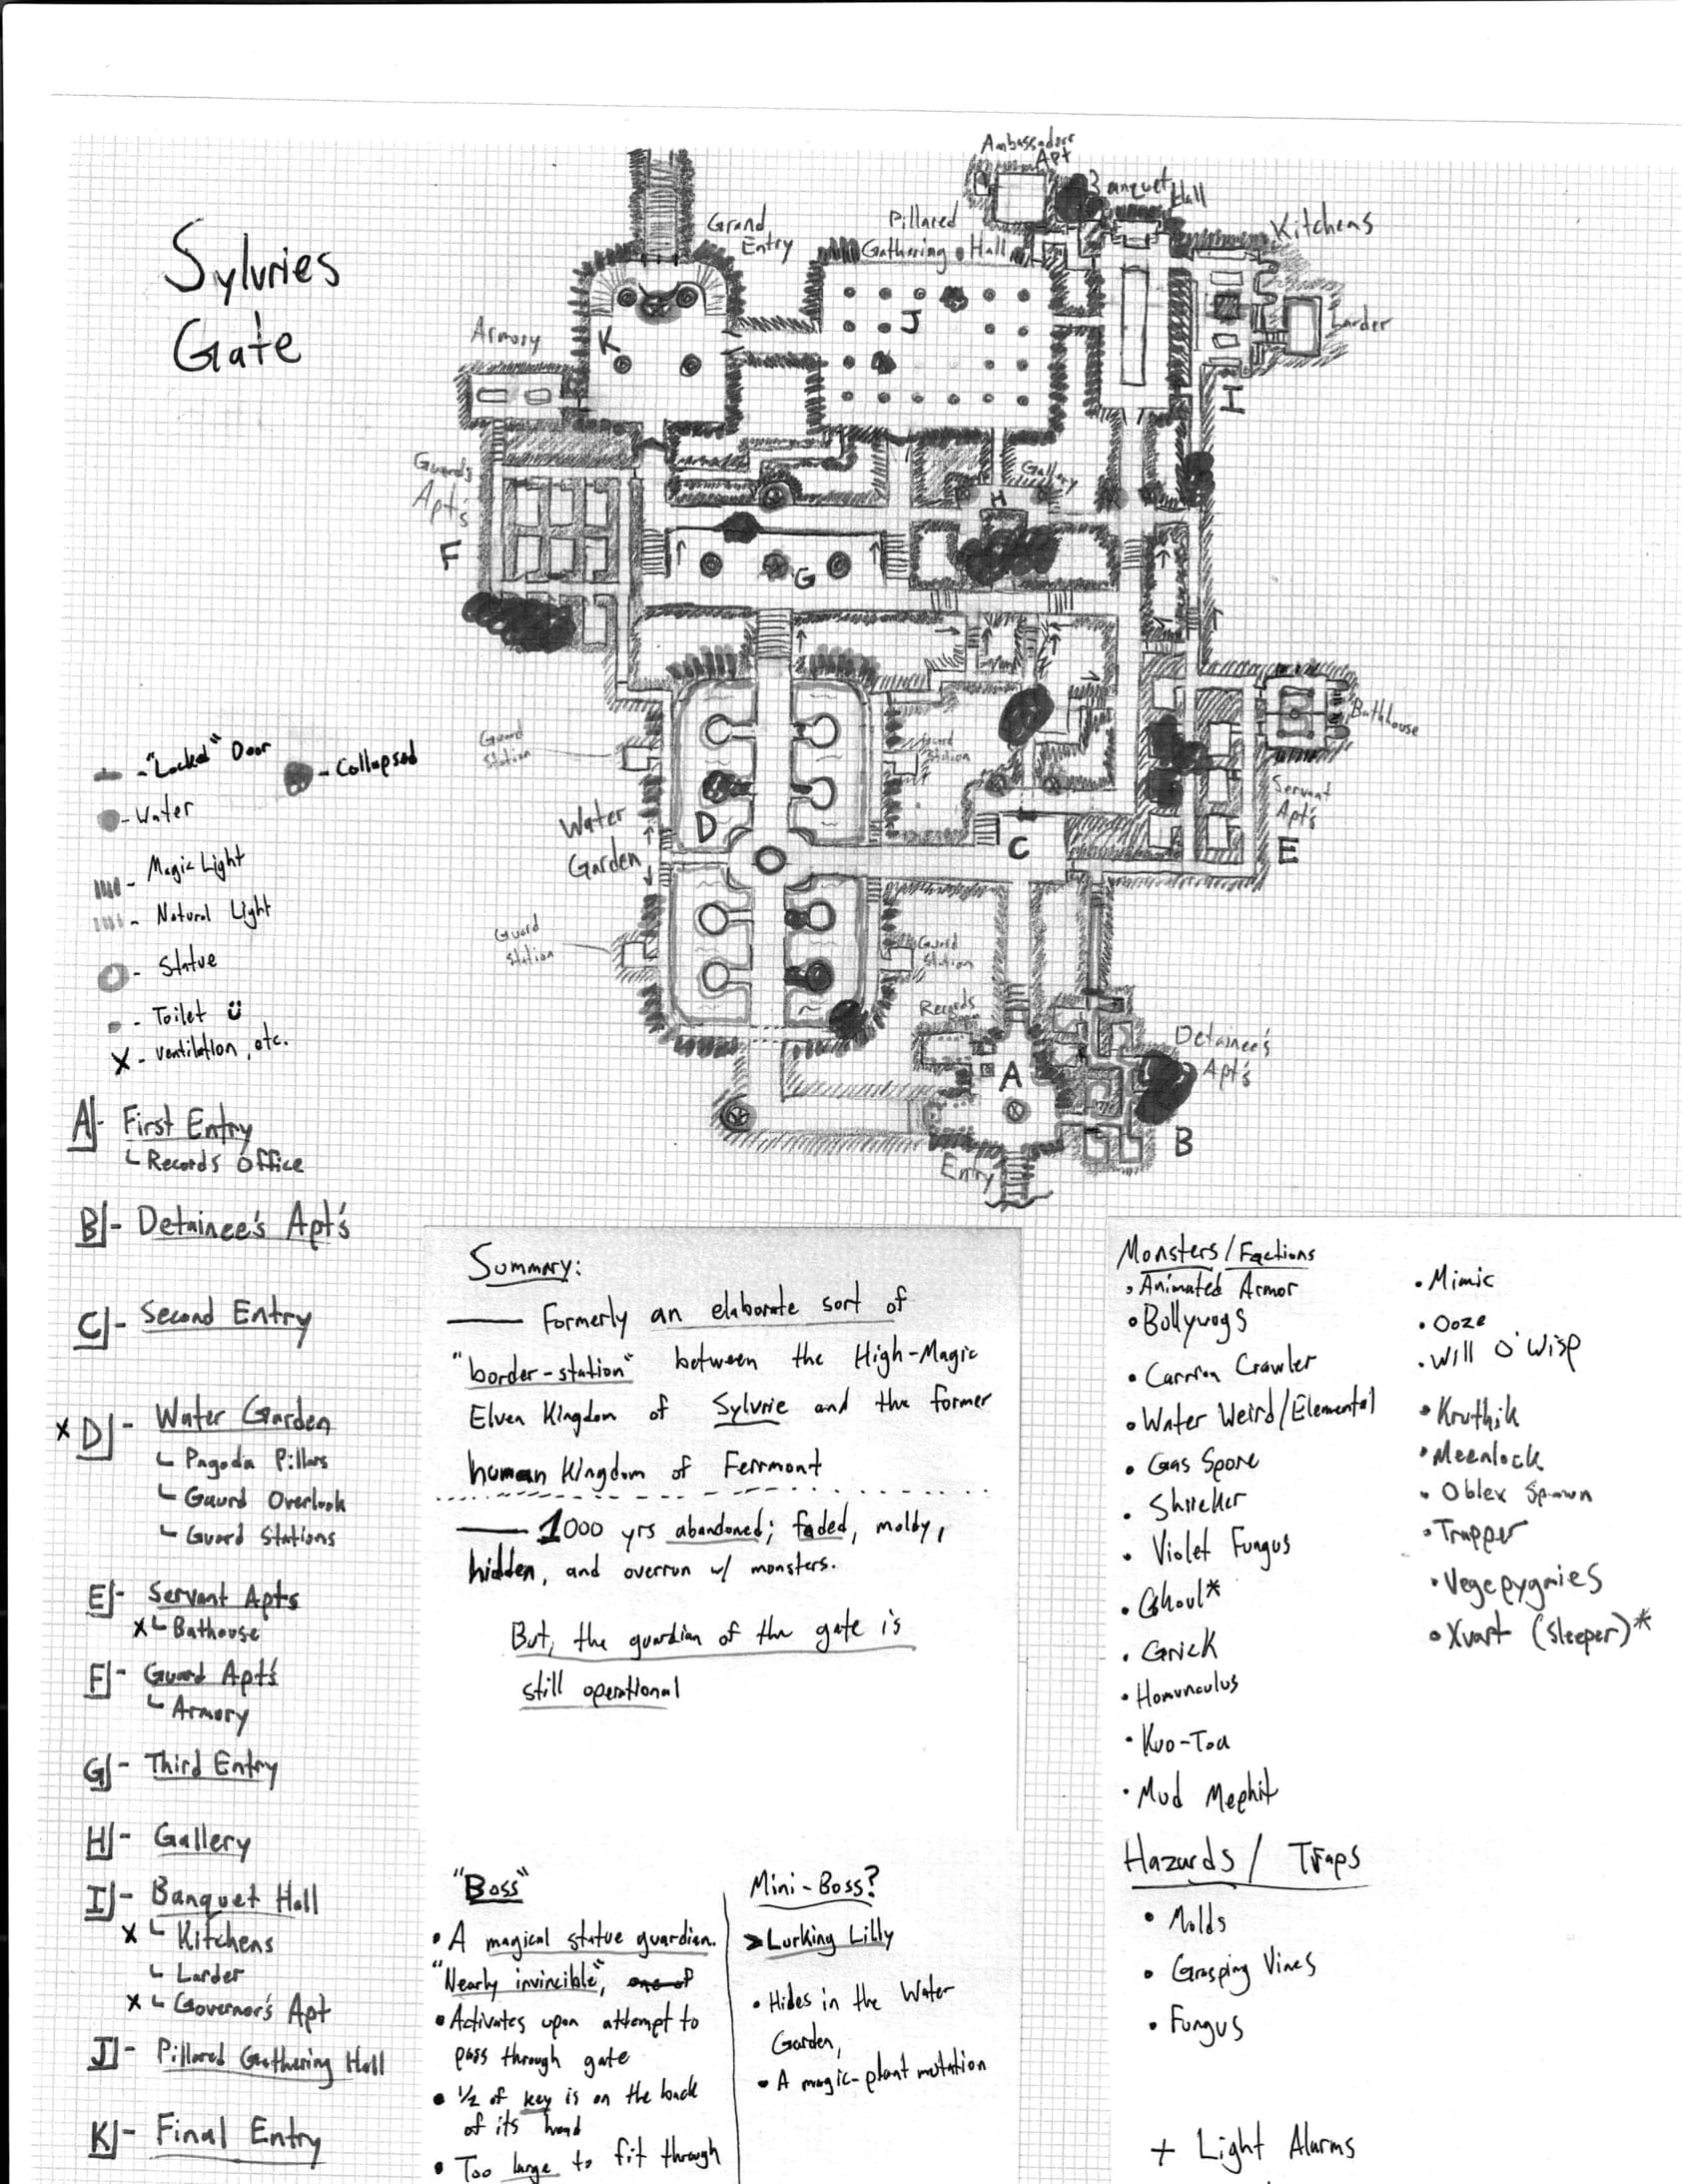 Sylvries
Gate
Ambassador
Apt
Banquet Hall
Grand
Entry
Pillared
Gathering Hall
Kitchens
Larder
Armory
K
J
I
Guards
Apt's
F
Gallery
H
G
Bathhouse
Servant
Apt's
E
Guard
Station
Guard
Station
Water
Garden
D
C
Guard
Station
Guard
Station
Records
A
Detainee's
Apt's
B
Entry
- "Locked" Door
- Collapsed
- Water
- Magic Light
- Natural Light
- Statue
- Toilet
X - Ventilation, etc.
A - First Entry
Records Office
B - Detainee's Apt's
C - Second Entry
X D - Water Garden
Pagoda Pillars
Gaurd Overlook
Guard Stations
E - Servant Apts
X Bathouse
F - Guard Apt's
Armory
G - Third Entry
H - Gallery
I - Banquet Hall
X Kitchens
Larder
X Governor's Apt
J - Pillared Gathering Hall
K - Final Entry
Summary:
Formerly an elaborate sort of
"border-station" between the High-Magic
Elven Kingdom of Sylvrie and the former
human Kingdom of Ferrmont
1000 yrs abandoned; faded, moldy,
hidden, and overrun w/ monsters.
But, the guardian of the gate is
still operational
"Boss"
• A magical statue guardian.
"Nearly invincible", one of
• Activates upon attempt to
pass through gate
• 1/2 of key is on the back
of its head
• Too large to fit through
Mini-Boss?
> Lurking Lilly
• Hides in the Water
Garden,
• A magic-plant mutation
Monsters/Factions
• Animated Armor
• Bollywogs
• Carrion Crawler
• Water Weird/Elemental
• Gas Spore
• Shrieker
• Violet Fungus
• Ghoul*
• Grick
• Homunculus
• Kuo-Toa
• Mud Mephit
• Mimic
• Ooze
• Will O' Wisp
• Kruthik
• Meenlock
• Oblex Spawn
• Trapper
• Vegepygmies
• Xvart (Sleeper)*
Hazards / Traps
• Molds
• Grasping Vines
• Fungus
+ Light Alarms